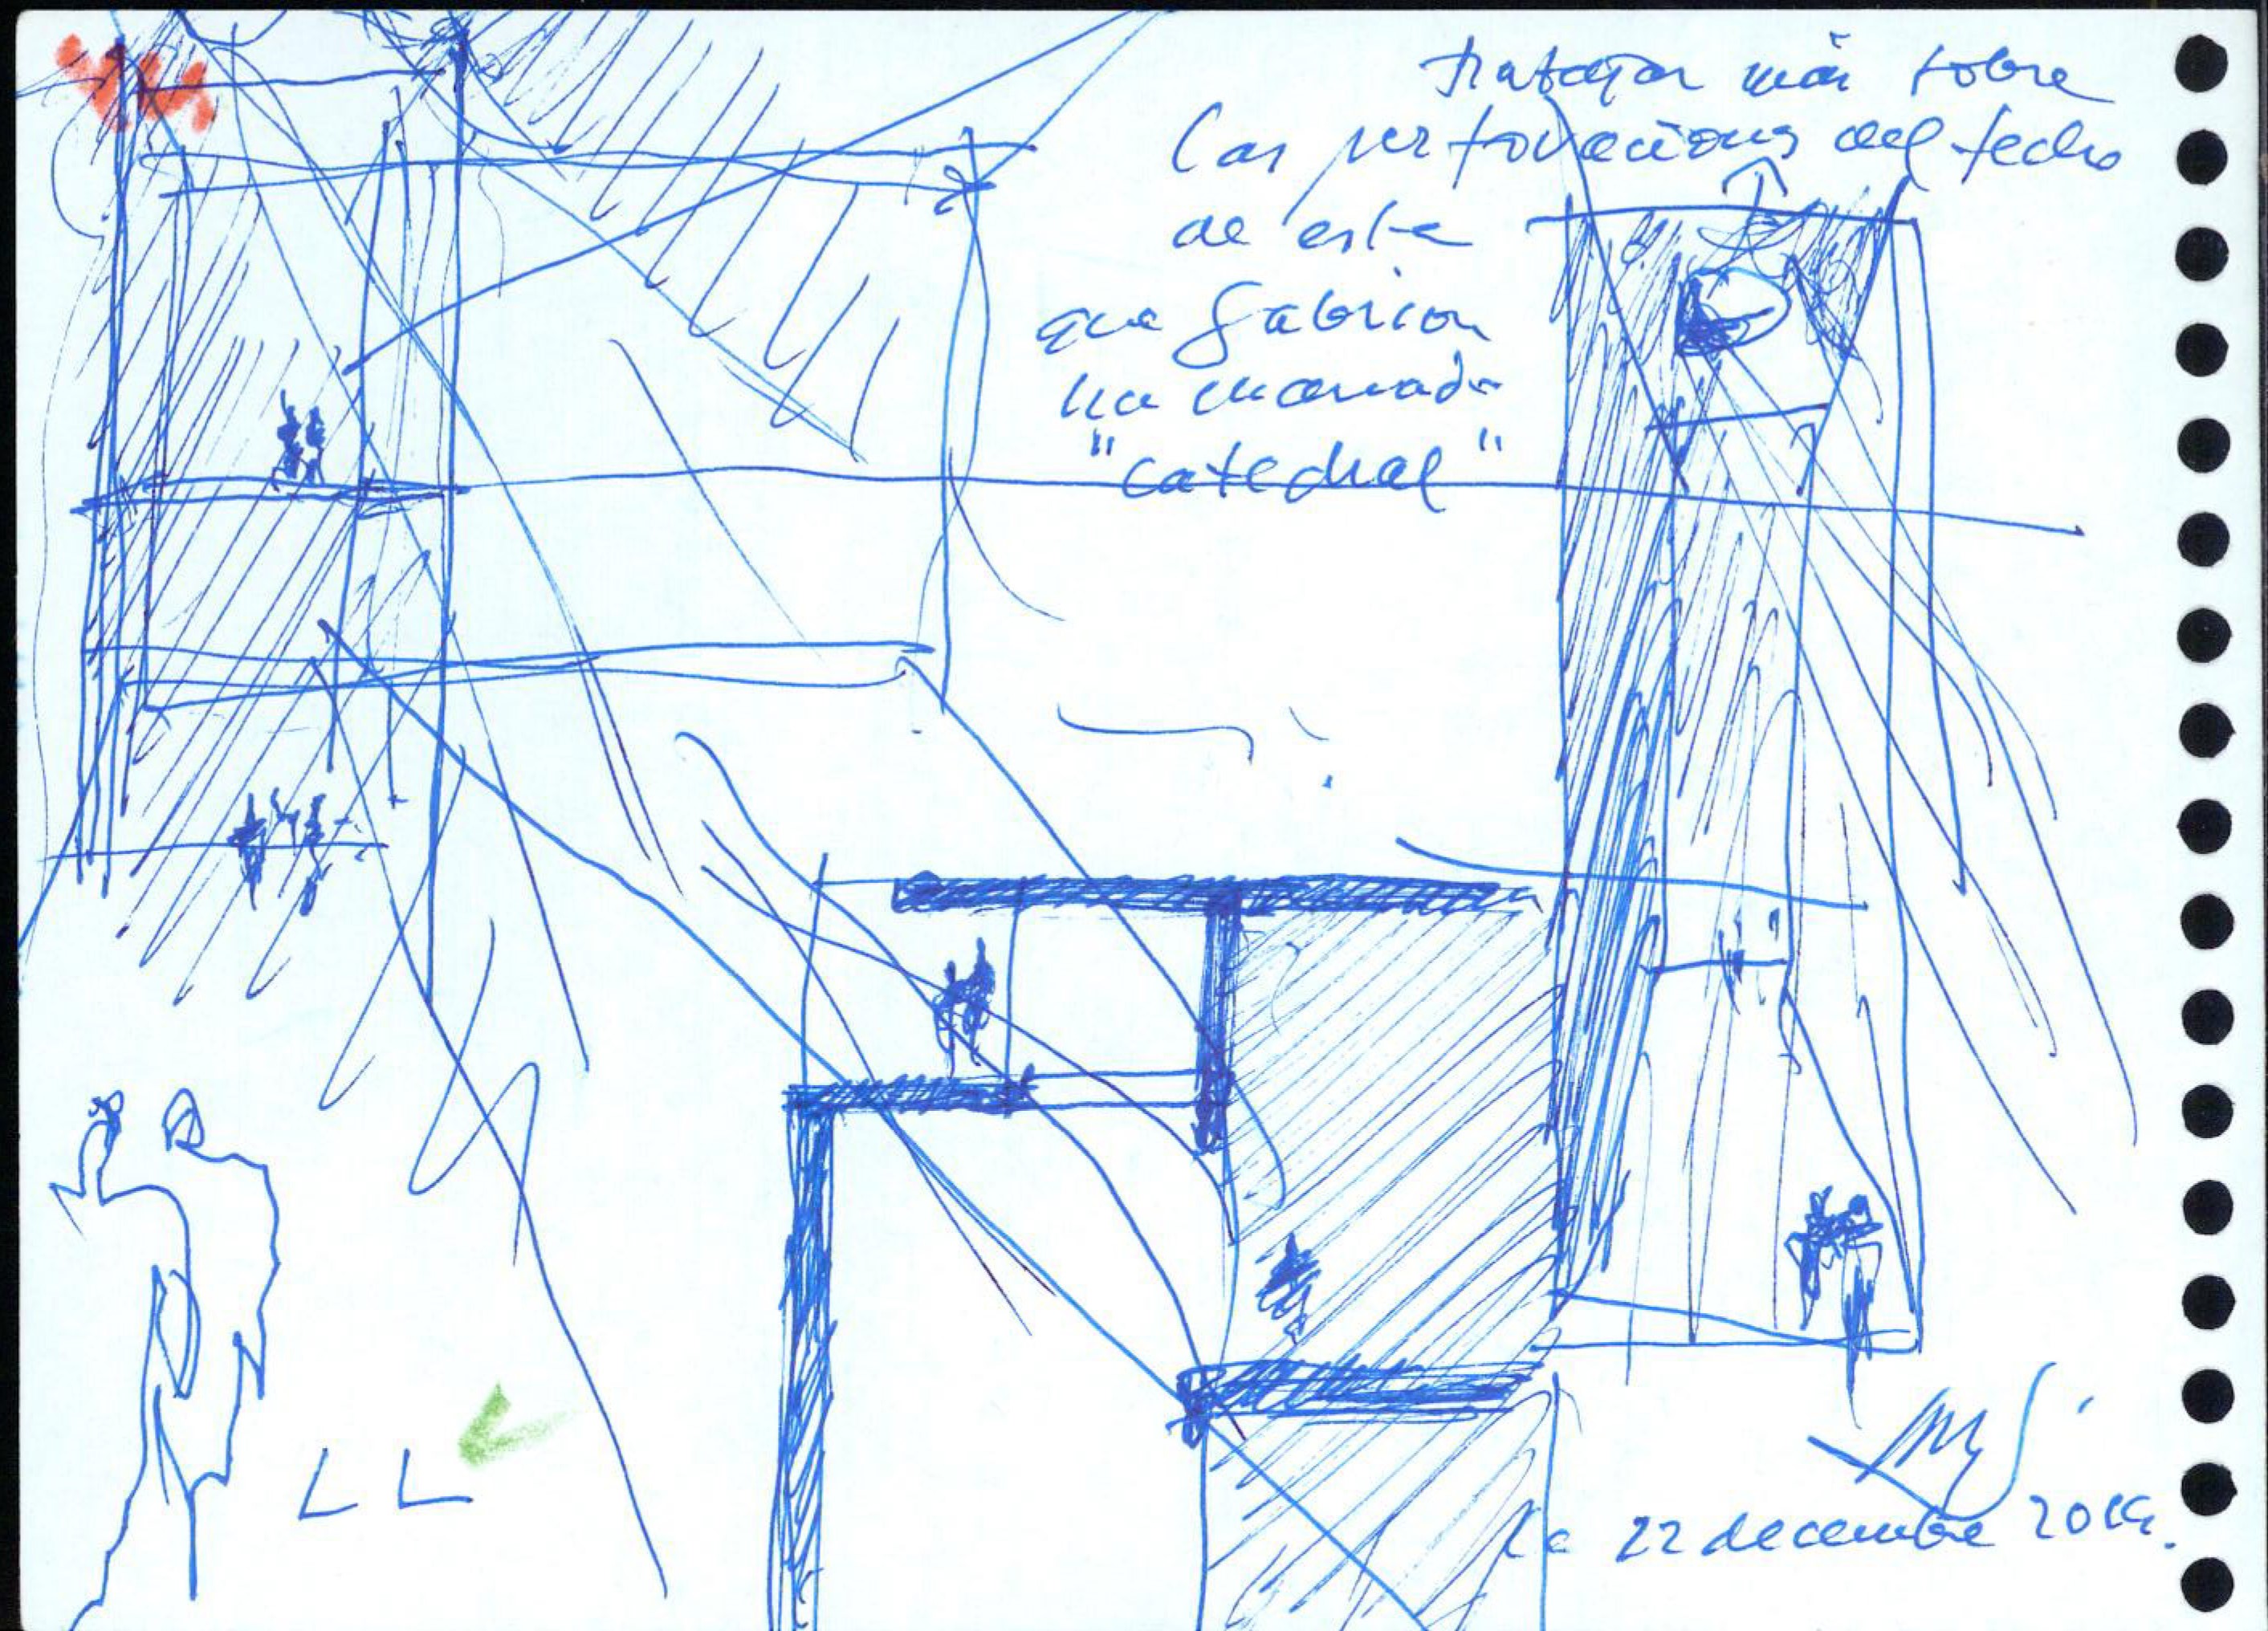 trabajar más sobre
las perforaciones del techo
de este
que Gabrion
ha llamado
"catedral"
LL
le 22 decembre 2014.